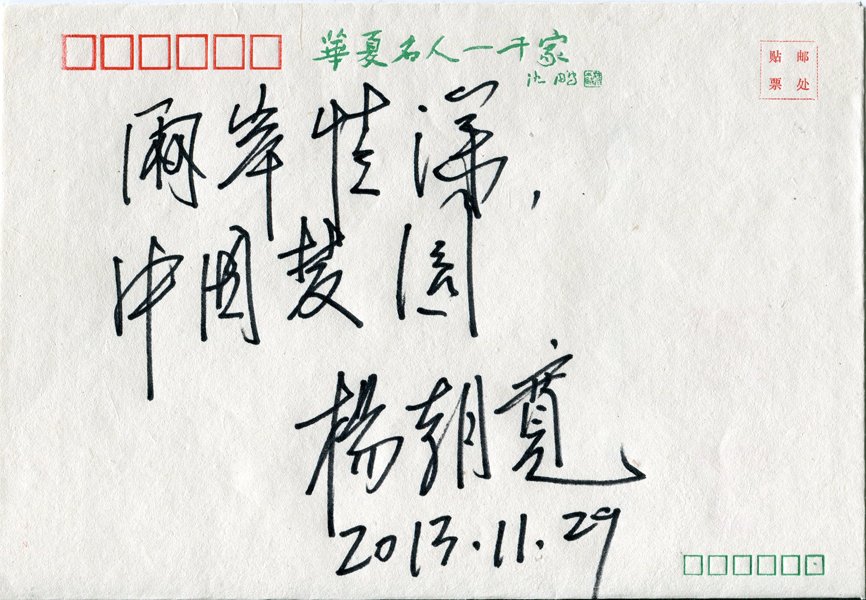 華夏名人一千家
沈鹏
贴 邮
票 处
兩岸情深,
中国梦圆
楊朝寬
2013.11.29